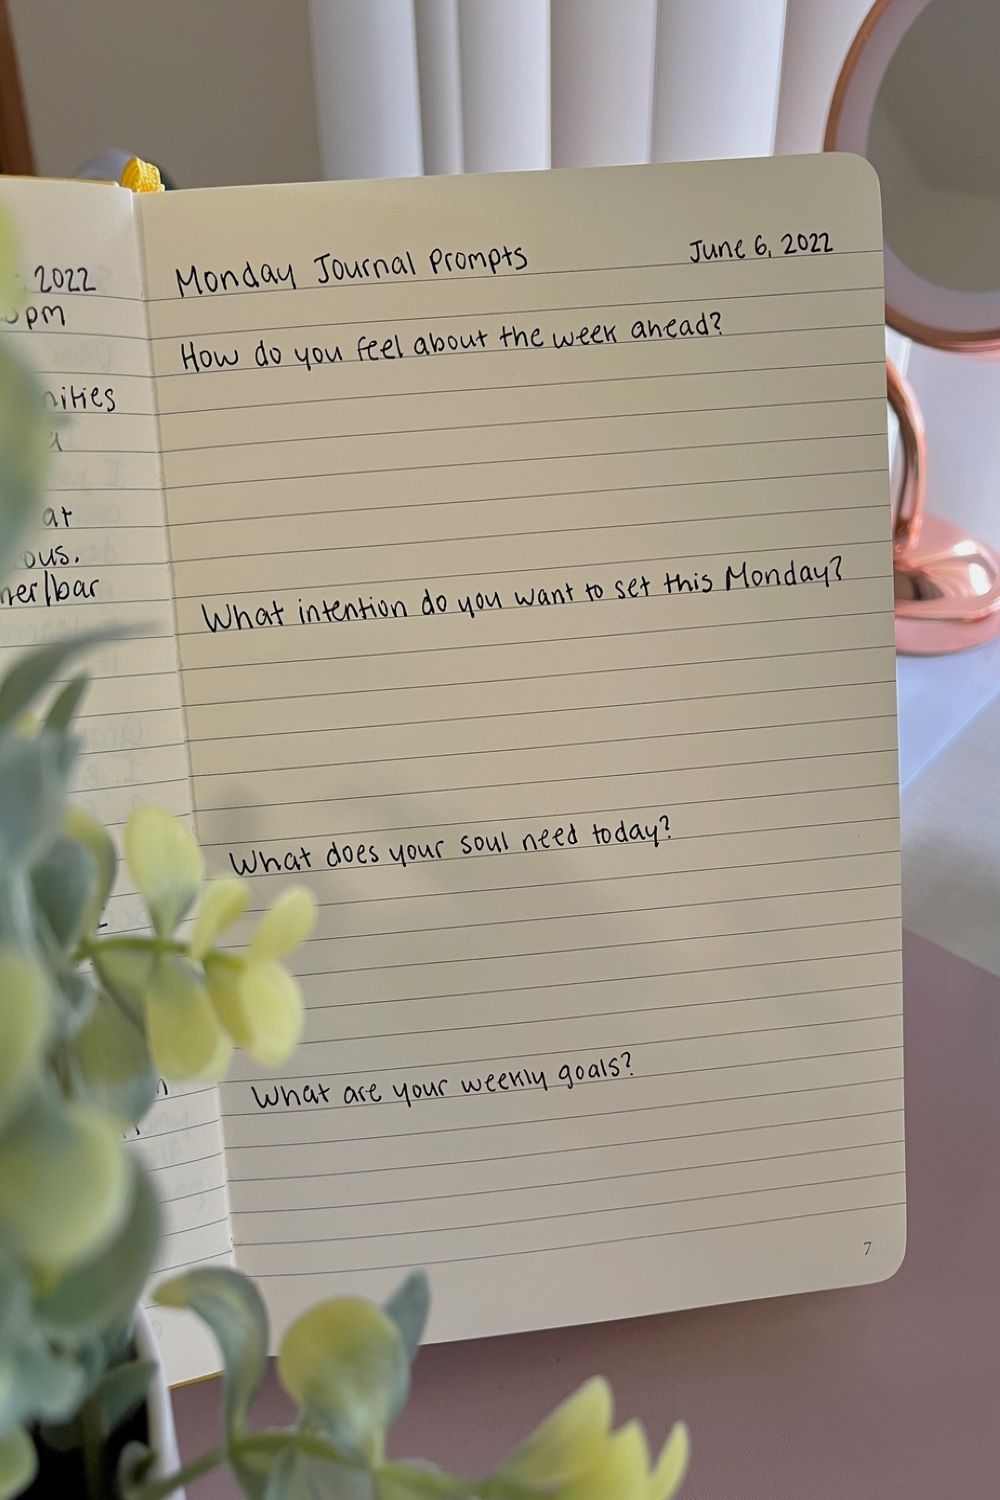 2022
pm
at
Monday Journal Prompts
June 6, 2022
How do you feel about the week ahead?
What intention do you want to set this Monday?
What does your soul need today?
What are your weekly goals?
7